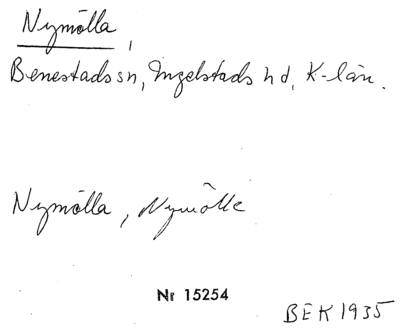 Nymölla,
Benestads sn, Ingelstads hd, K-län.
Nymölla, Nymölle
Nr 15254
BEK 1935